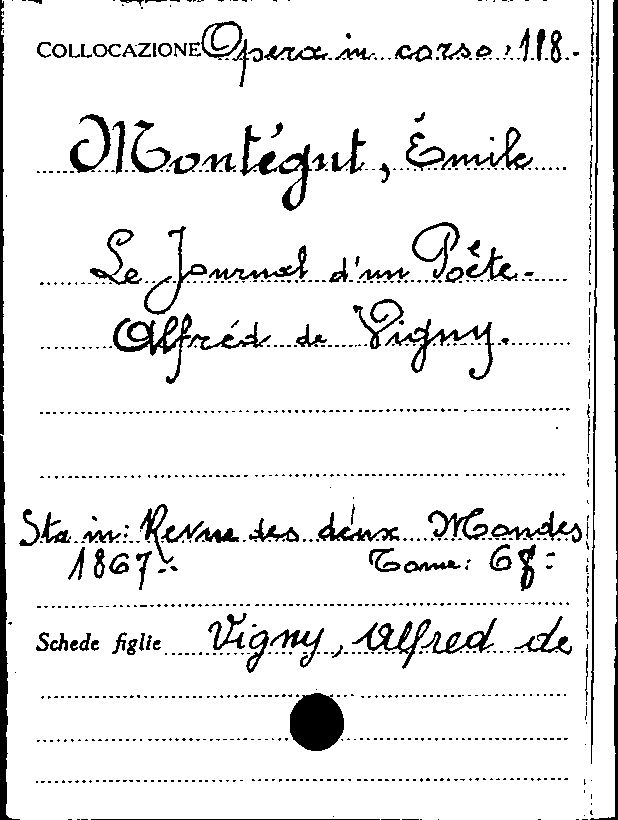 COLLOCAZIONE Opera in corso: 118.
Montégut, Émile
Le Journal d'un Poète.
Alfréd de Vigny.
Sta in: Revue des deux Mondes
1867. Tome: 68
Schede figlie Vigny, Alfred de